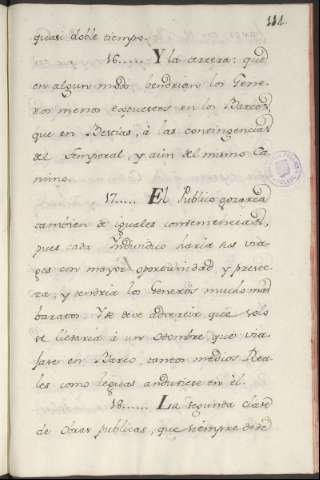 111
quasi doble tiempo.
16...... Y la tercera: que
en algun modo bendrian los Gene-
ros menos expuestos en los Barcos,
que en Bestias, á las contingencias
del Temporal, y aún del mismo Ca-
mino.
17...... El Publico gozaria
tambien de iguales combeniencias,
pues cada Yndividuo haria sus via-
ges con mayor oportunidad, y preste-
za; y tendria los Generos mucho mas
baratos. Y se deve advertir que solo
se llevaria á un Hombre, que via-
jase en Barco, tantos medios Rea-
les como leguas anduviese en él.
18...... La segunda clase
de Obras publicas, que siempre deve